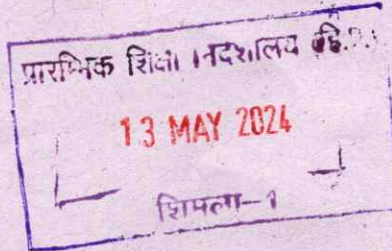 प्रारम्भिक शिक्षा निदेशालय हि.प्र.
13 MAY 2024
शिमला-1